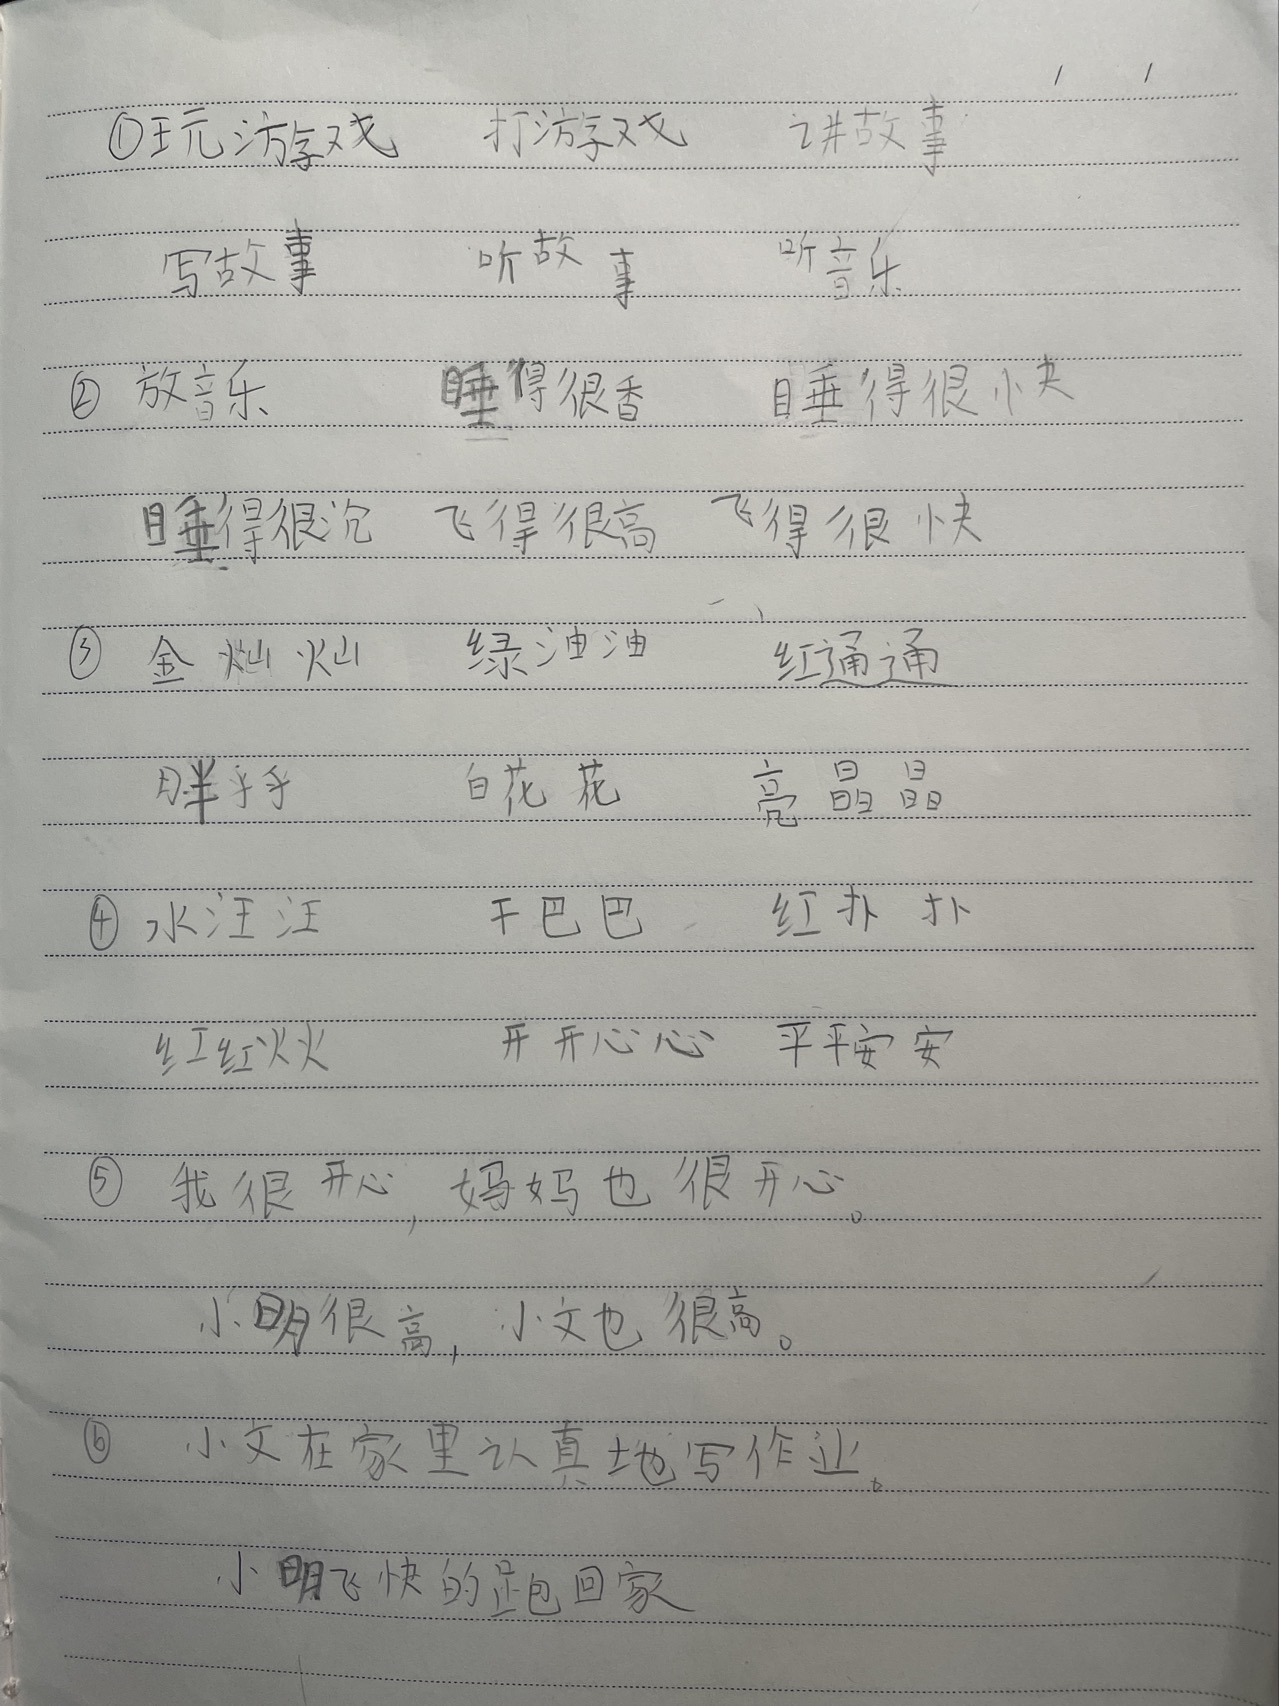 ①玩游戏 打游戏 讲故事
写故事 听故事 听音乐
②放音乐 睡得很香 睡得很快
睡得很沉 飞得很高 飞得很快
③金灿灿 绿油油 红通通
胖乎乎 白花花 亮晶晶
④水汪汪 干巴巴 红扑扑
红红火火 开开心心 平平安安
⑤我很开心,妈妈也很开心。
小明很高,小文也很高。
⑥小文在家里认真地写作业。
小明飞快的跑回家